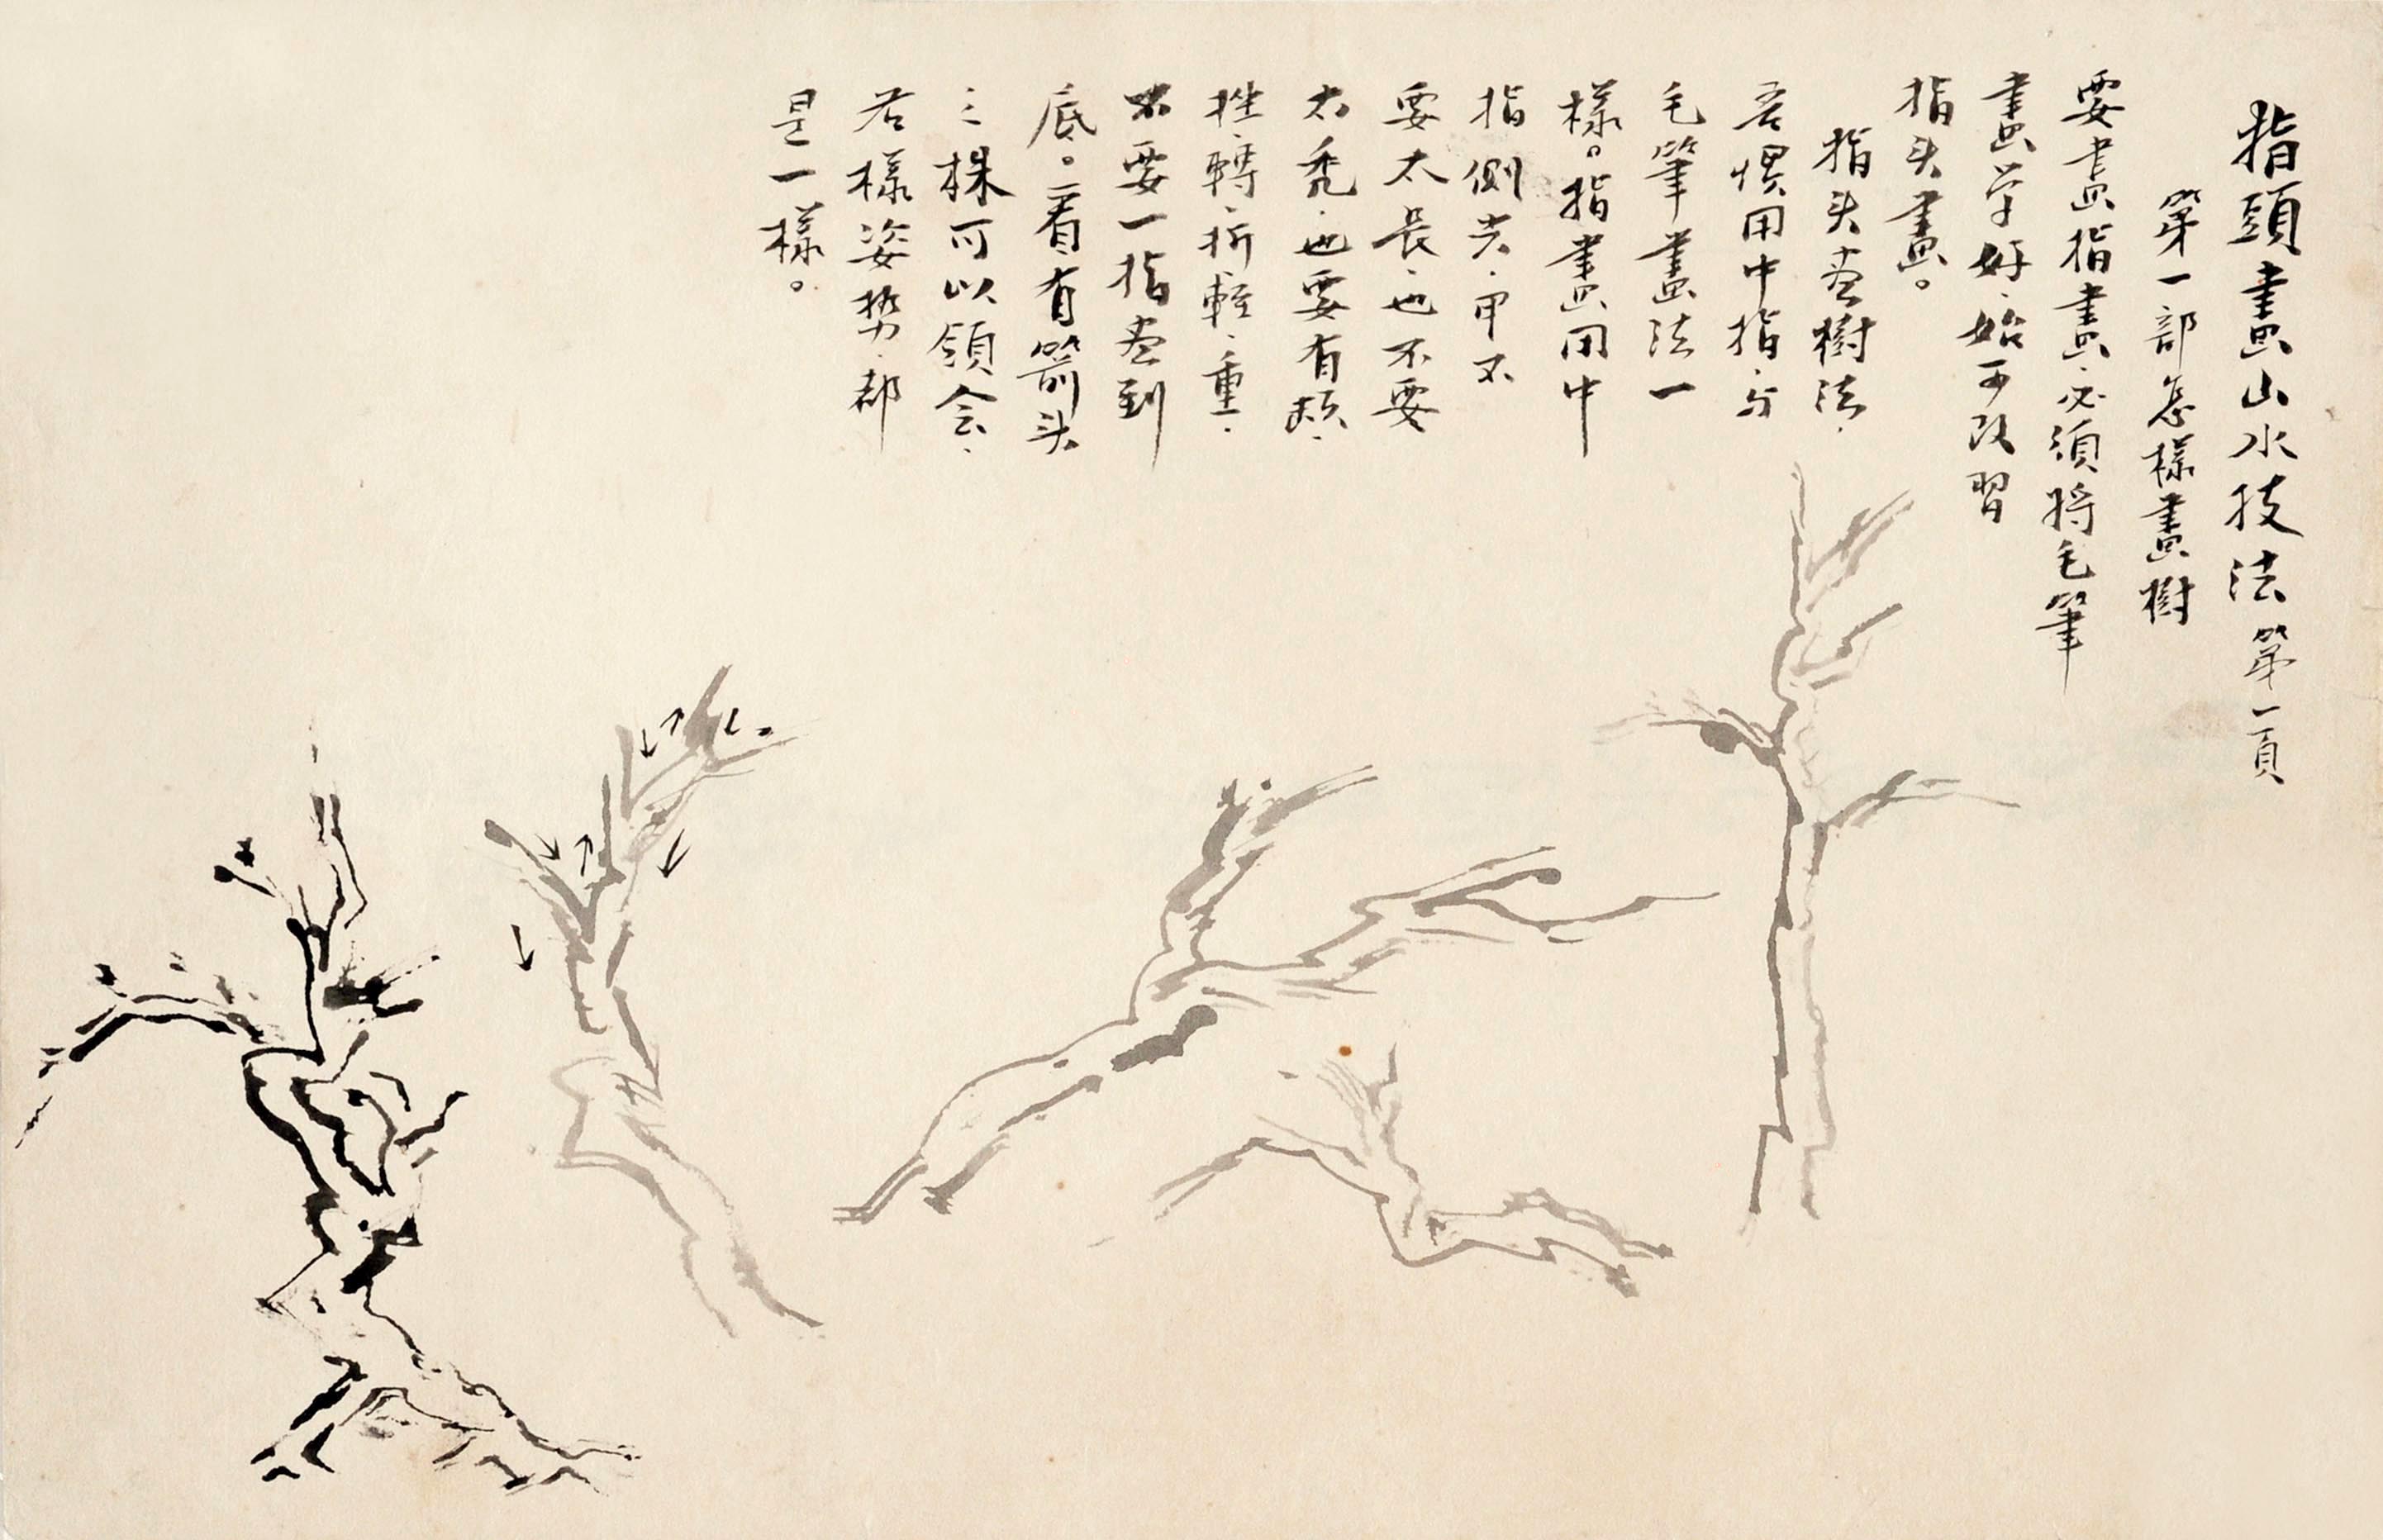 指頭畫山水技法 第一頁
第一部怎樣畫樹
要畫指畫、必須將毛筆
畫学好、始可改習
指头畫。
指头画樹法、
吾慣用中指、与
毛筆畫法一
樣。指畫用中
指側尖、甲不
要太長、也不要
太秃、也要有頓、
挫、轉、折、輕、重、
不要一指画到
底。看有箭头
之株可以領会、
若樣姿势、都
是一樣。